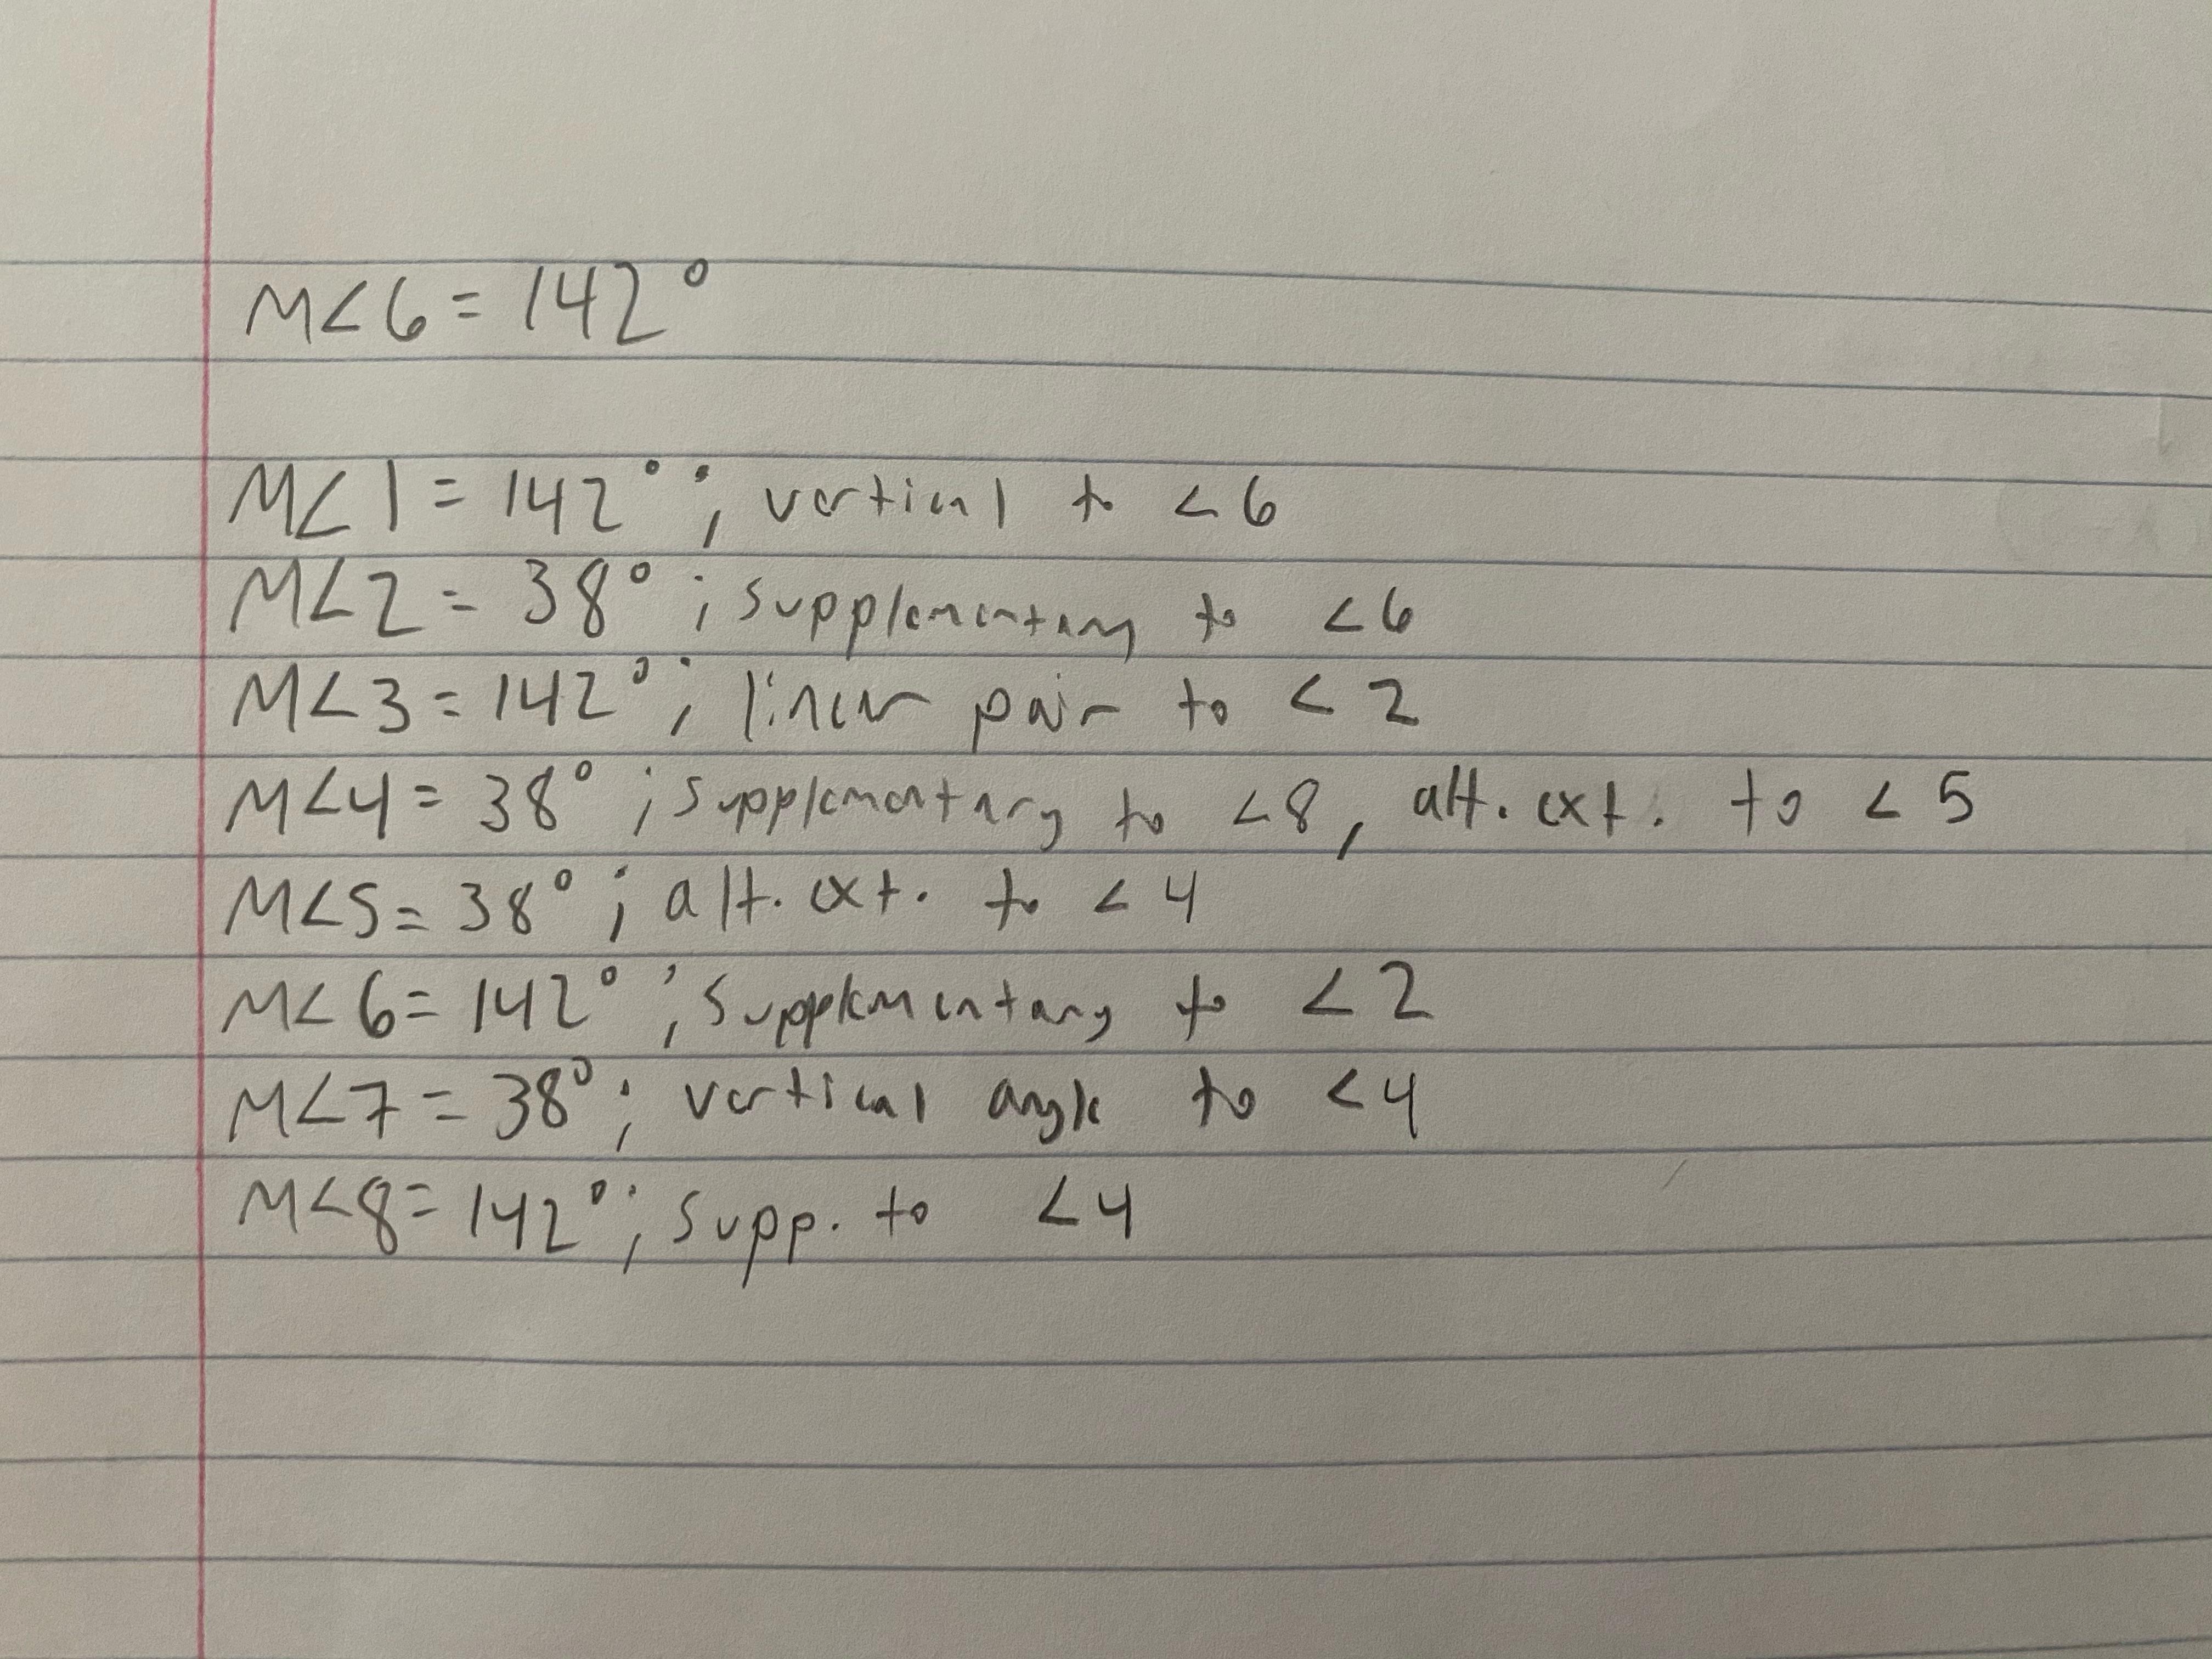 M<6 = 142°
M<1 = 142° ; vertical to <6
M<2 = 38° ; supplementary to <6
M<3 = 142° ; linear pair to <2
M<4 = 38° ; supplementary to <8, alt. ext. to <5
M<5 = 38° ; alt. ext. to <4
M<6 = 142° ; supplementary to <2
M<7 = 38° ; vertical angle to <4
M<8 = 142° ; supp. to <4